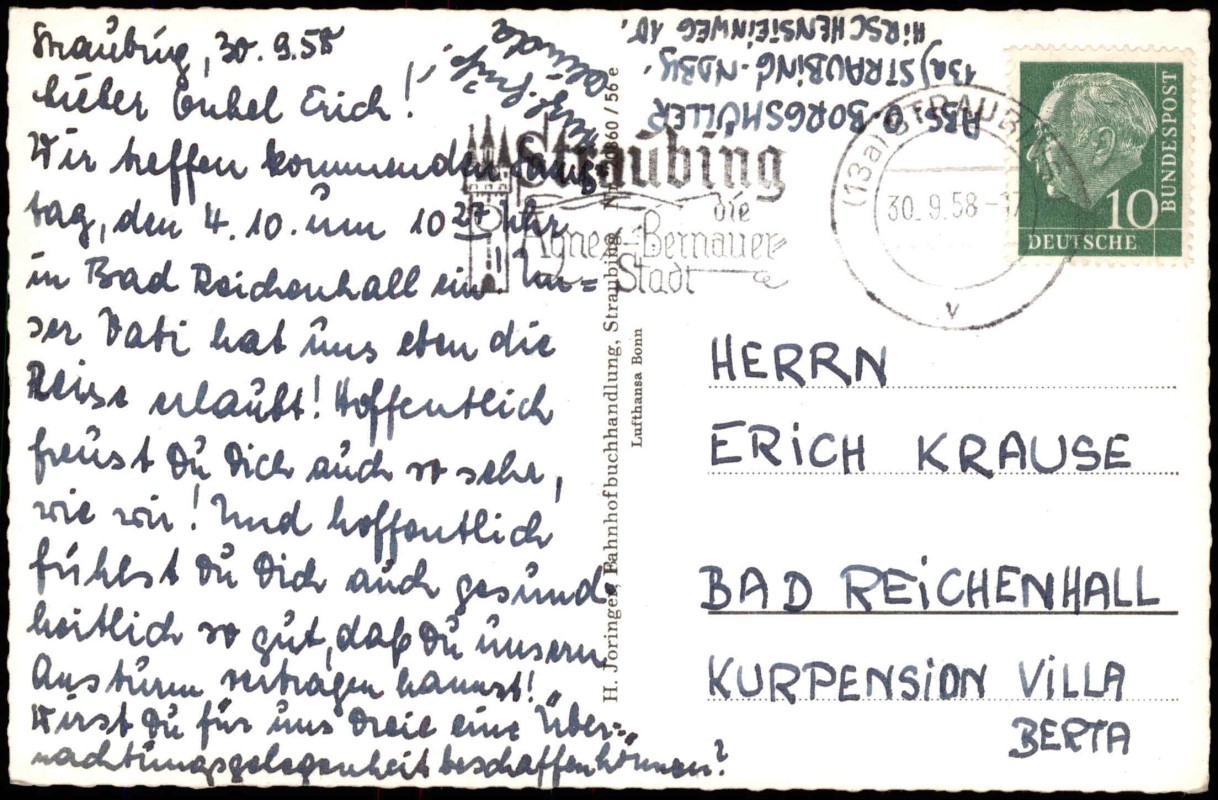 Straubing, 30.9.58
Lieber Onkel Erich!
Wir treffen kommenden Sams-
tag, den 4.10. um 10 27 Uhr
in Bad Reichenhall ein. Un=
ser Vati hat uns eben die
Reise erlaubt! Hoffentlich
freust Du Dich auch so sehr,
wie wir! Und hoffentlich
fühlst Du Dich auch gesund=
heitlich so gut, daß Du unsern
Ansturm vertragen kannst!
Wirst Du für uns Dreie eine Über=
nachtungsgelegenheit beschaffen können?
ABS O. BORGSMÜLLER
13a) STRAUBING-NDBY.
HIRSCHENSTEINWEG 10.
Straubing
die
Agnes-Bernauer-
Stadt
(13a) STRAUBING
30.9.58-17
v
BUNDESPOST
10
DEUTSCHE
H. Joringer, Bahnhofbuchhandlung, Straubing. 60/56 e
Lufthansa Bonn
HERRN
ERICH KRAUSE
BAD REICHENHALL
KURPENSION VILLA
BERTA